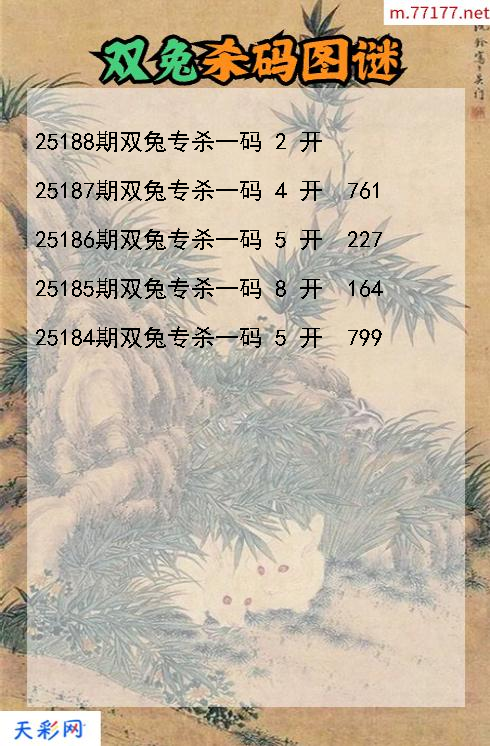 m.77177.net
双兔杀码图谜
25188期双兔专杀一码 2 开
25187期双兔专杀一码 4 开 761
25186期双兔专杀一码 5 开 227
25185期双兔专杀一码 8 开 164
25184期双兔专杀一码 5 开 799
天彩网